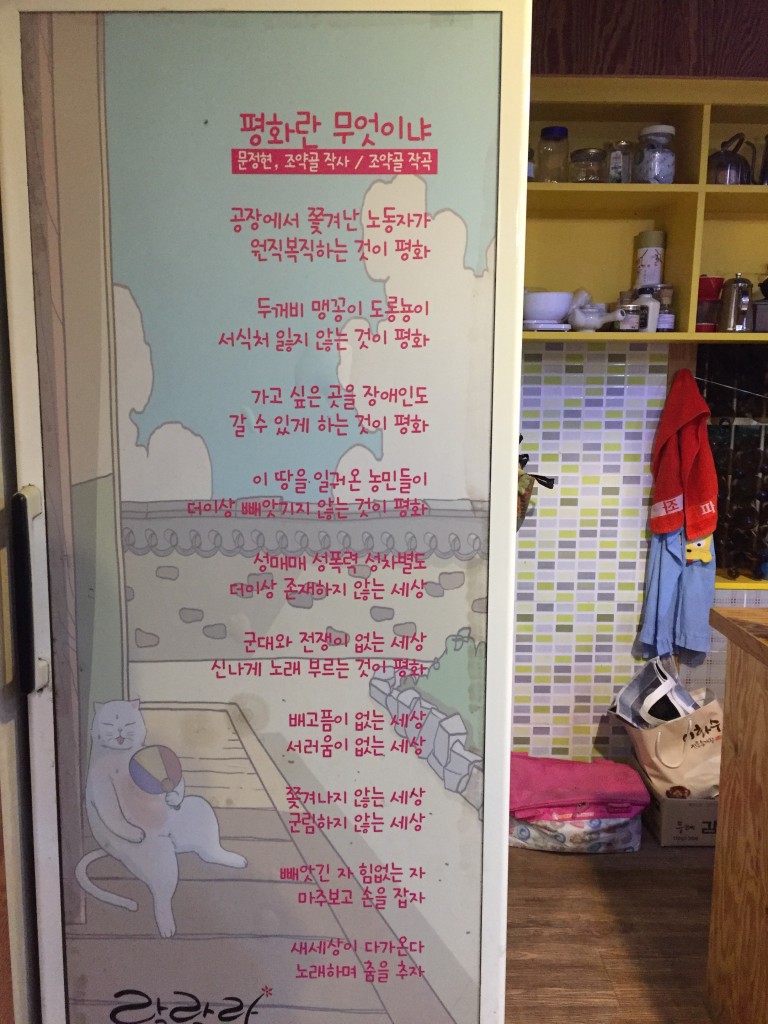 평화란 무엇이냐
문정현, 조약골 작사 / 조약골 작곡
공장에서 쫓겨난 노동자가
원직복직하는 것이 평화
두꺼비 맹꽁이 도롱뇽이
서식처 잃지 않는 것이 평화
가고 싶은 곳을 장애인도
갈 수 있게 하는 것이 평화
이 땅을 일궈온 농민들이
더이상 빼앗기지 않는 것이 평화
성매매 성폭력 성차별도
더이상 존재하지 않는 세상
군대와 전쟁이 없는 세상
신나게 노래 부르는 것이 평화
배고픔이 없는 세상
서러움이 없는 세상
쫓겨나지 않는 세상
군림하지 않는 세상
빼앗긴 자 힘없는 자
마주보고 손을 잡자
새세상이 다가온다
노래하며 춤을 추자
랄랄라*